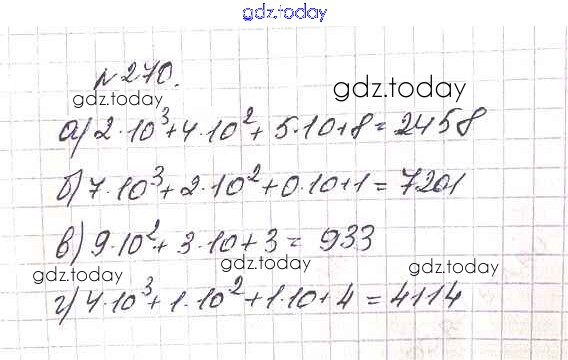 gdz.today
№270.
gdz.today
gdz.today
а) 2·10³+4·10²+5·10+8=2458
б) 7·10³+2·10²+0·10+1=7201
в) 9·10²+3·10+3=933
gdz.today
gdz.today
gdz.today
г) 4·10³+1·10²+1·10+4=4114